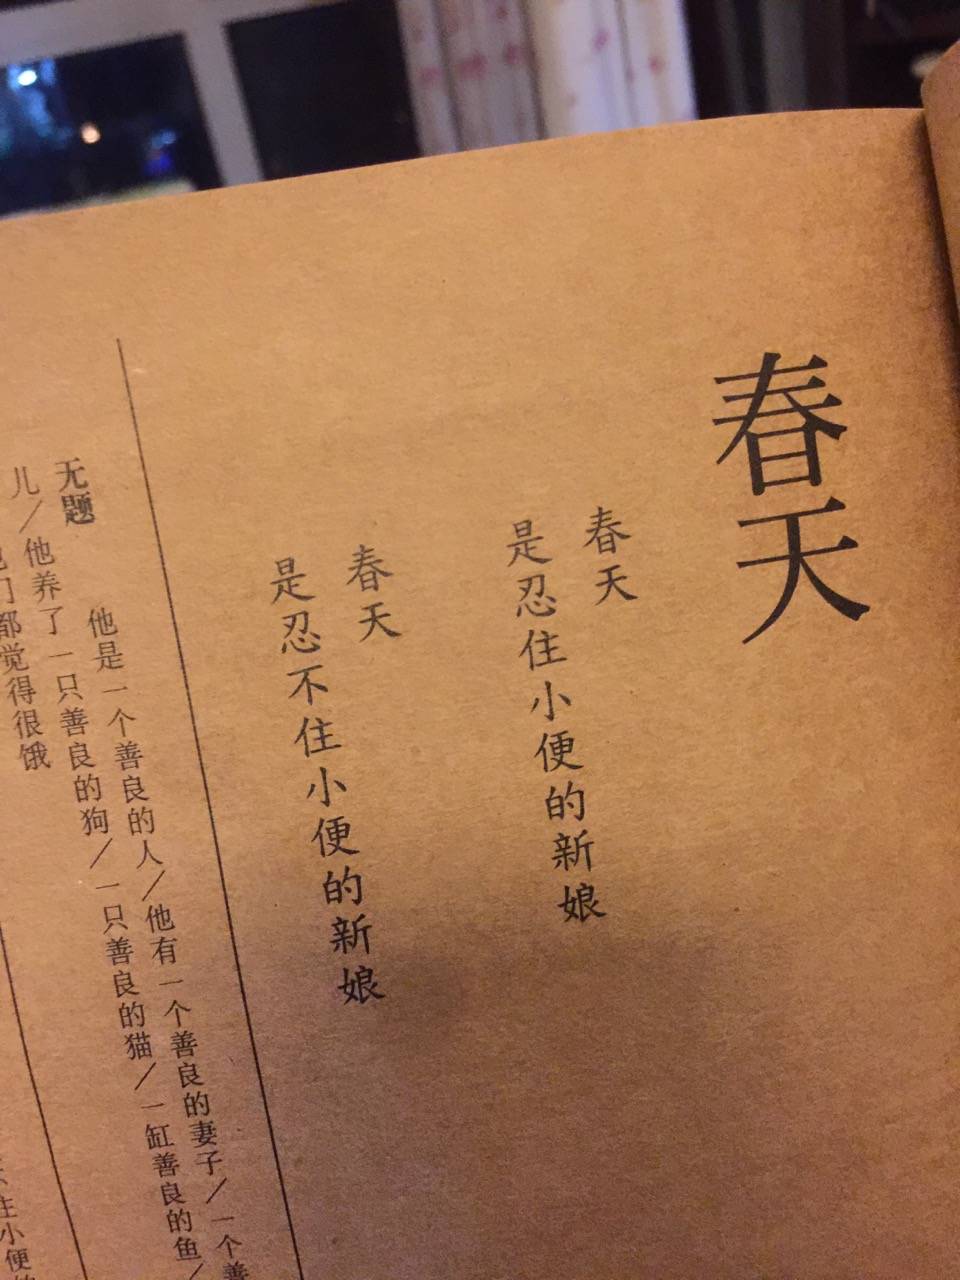 春天
春天
是忍住小便的新娘
春天
是忍不住小便的新娘
无题 他是一个善良的人/他有一个善良的妻子/一个善
儿/他养了一只善良的狗/一只善良的猫/一缸善良的鱼/
们都觉得很饿
住小便